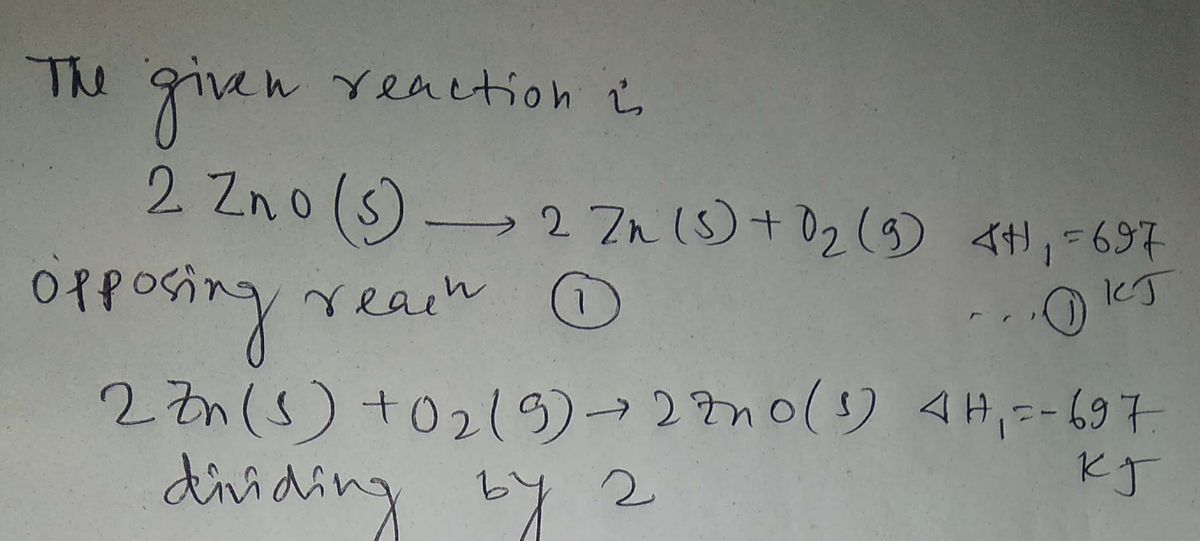 The given reaction is
2 ZnO(s) → 2 Zn(s) + O2(g) ΔH1 = 697
KJ
opposing reacn ① ...①
2 Zn(s) + O2(g) → 2 ZnO(s) ΔH1 = -697
KJ
dividing by 2